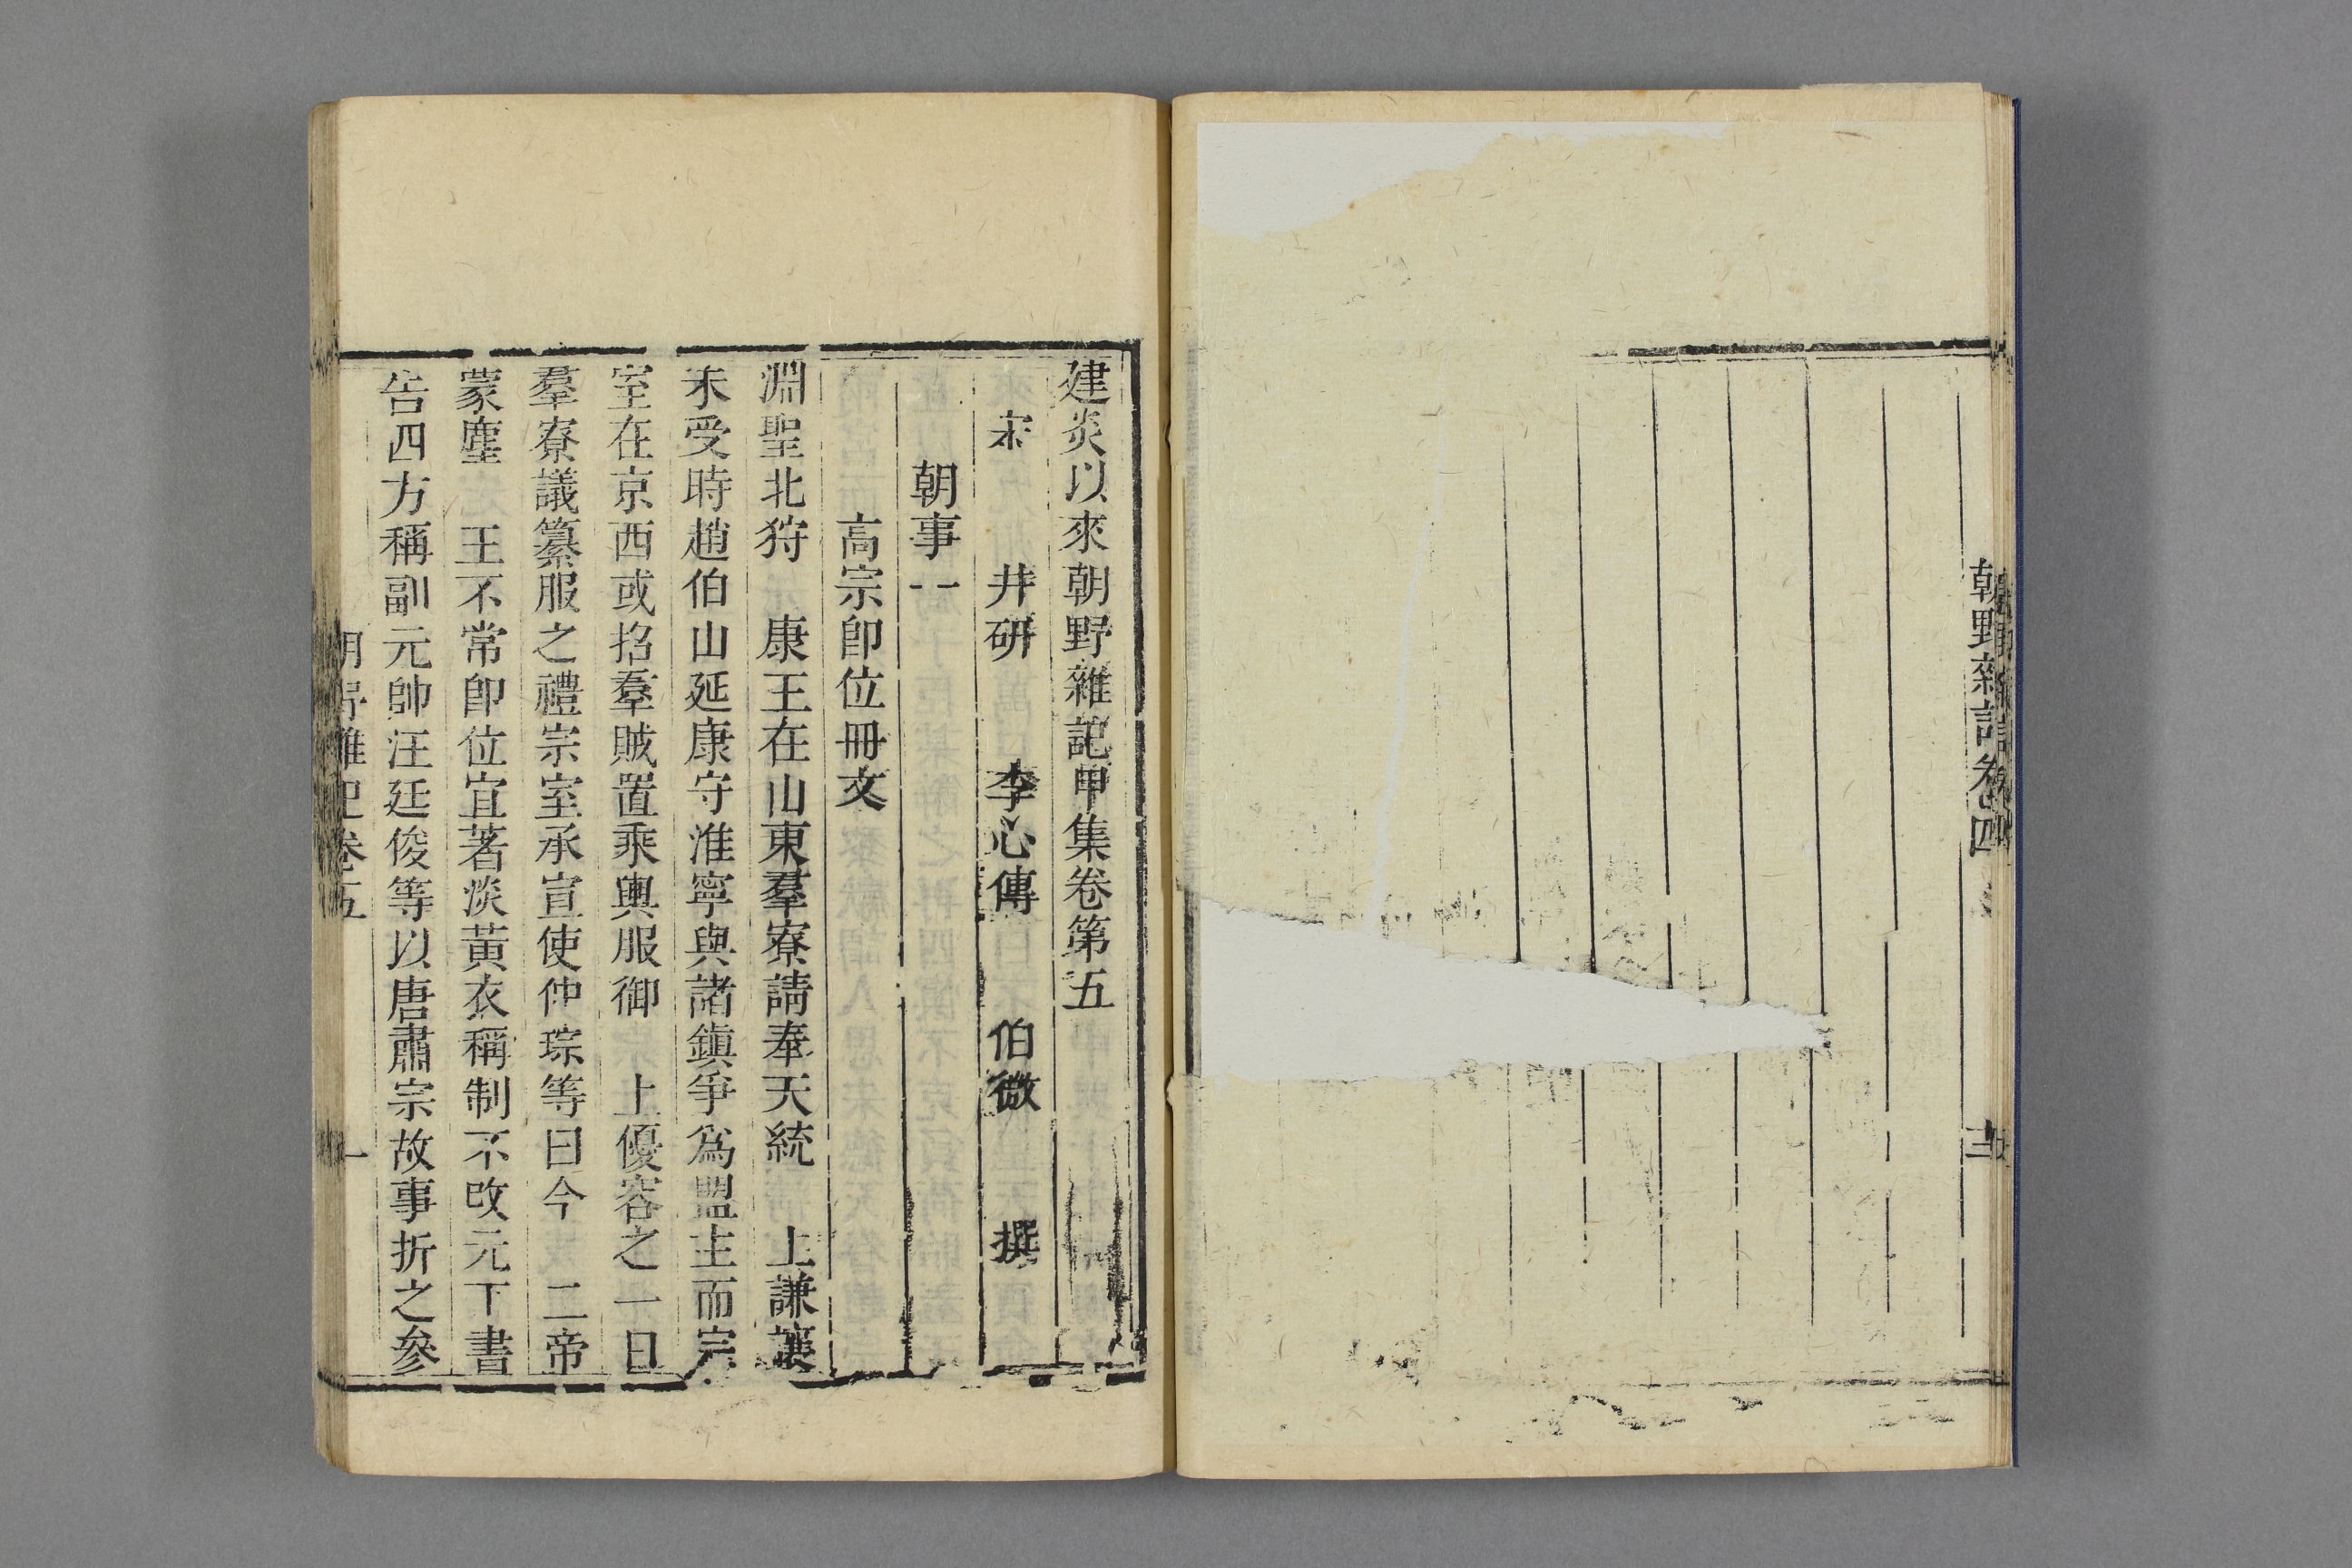 朝野雜記卷四
建炎以來朝野雜記甲集卷第五
宋 井研 李心傳 伯微 撰
朝事一
高宗卽位冊文
淵聖北狩 康王在山東羣寮請奉天統 上謙讓
未受時趙伯山延康守淮寧與諸鎮爭爲盟主而宗
室在京西或招羣賊置乘輿服御 上優容之一日
羣寮議纂服之禮宗室承宣使仲琮等曰今 二帝
蒙塵 王不常卽位宜著淡黃衣稱制不改元下書
告四方稱副元帥汪廷俊等以唐肅宗故事折之參
朝野雜記卷五 一